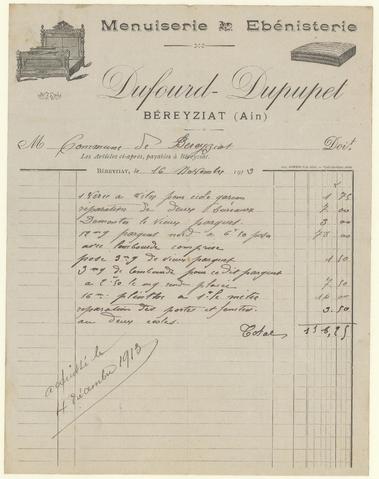 Menuiserie Ebénisterie
Dufourd-Dupupet
BÉREYZIAT (Ain)
M Commune de Béreyziat Doit
Les Articles ci-après, payables à Béreyziat.
BÉREYZIAT, le 16 Novembre 1913
1 Verre a pour école garcon 1 75
réparation de deux Bureaux 7 00
Demonter le vieux parquet 3 00
12 mq parquet nord a 6 50 posé 78 00
avec lambourde comprise
posé 3 mq de vieux parquet 1 50
3 mq de lambourde pour ce dit parquet
a 2 50 le mq rendu placé 7 50
16 m plinthes a 1 le metre
réparation des portes et fenetres 3 50
au deux écoles.
Total 136,25
acquitté le
4 décembre 1913